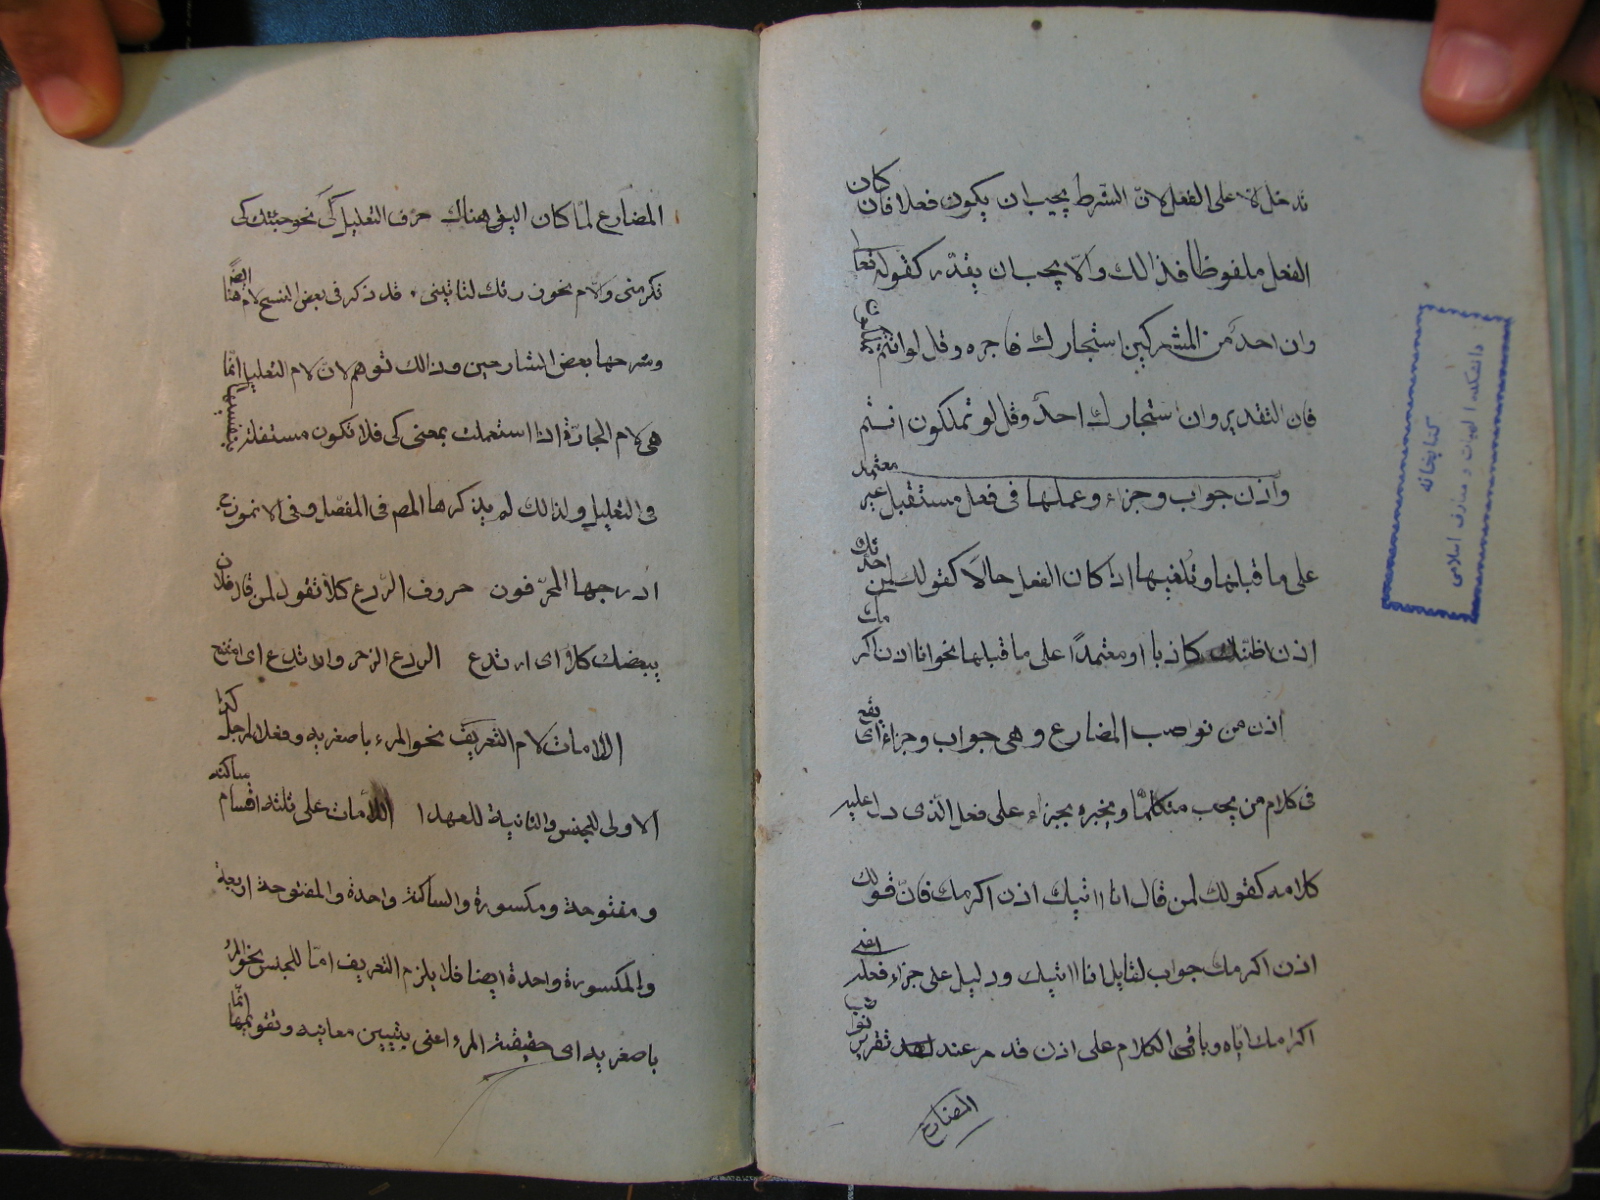 تدخلان على الفعل لان الشرط يجب ان يكون فعلا فان كان
الفعل ملفوظا فذالك والا يجب ان يقدر كقوله تعا
وان احد من المشركين استجارك فاجره وقل لو انتم تملكون
فان التقدير وان استجارك احد وقل لو تملكون انتم
واذن جواب وجزاء وعملها في فعل مستقبل غير معتمد
على ما قبلها وتلغيها اذا كان الفعل حالا كقولك لمن حدثك
اذن اظنك كاذبا او معتمدا على ما قبلها نحو انا اذن اكرمك
اذن من نواصب المضارع وهي جواب وجزاء اي يقع
في كلام من يجب متكلما ويخبره بجزاء على فعل الذي دل عليه
كلامه كقولك لمن قال انا اتيك اذن اكرمك فان قولك
اذن اكرمك جواب لقايل انا اتيك ودليل على جزاء فعله
اكرامك اياه وباقي الكلام على اذن قد مر عند نواصب
المضارع
المضارع لما كان اليق هناك حرف التعليل كي نحو جئتك كي
تكرمني واللام نحو زرتك لتاتيني قد ذكر في بعض النسخ لام هنا ايضا
وشرحها بعض الشارحين وذالك توهم لان لام التعليل انما
هي لام الجارة اذا استعملت بمعنى كي فلا تكون مستقلة بنفسها
في التعليل ولذالك لم يذكرها المص في المفصل وفي الانموذج
ادرجها المحرفون حروف الردع كلا تقول لمن قال فلان
يبغضك كلا اي ارتدع الردع الزجر والارتدع اي امتنع
اللامات لام التعريف نحو المرء باصغريه وفعل الرجل كذا
الاولى للجنس والثانية للعهد اللامات على ثلثه اقسام ساكنه
ومفتوحة ومكسورة والساكنة واحدة والمفتوحة اربعة
والمكسورة واحدة ايضا فلا يلزم التعريف اما للجنس نحو المرء
باصغريه اي حقيقة المرء اعني بتبيين معانيه وتقويمها انما
كتابخانه
دانشكده الهيات و معارف اسلامى